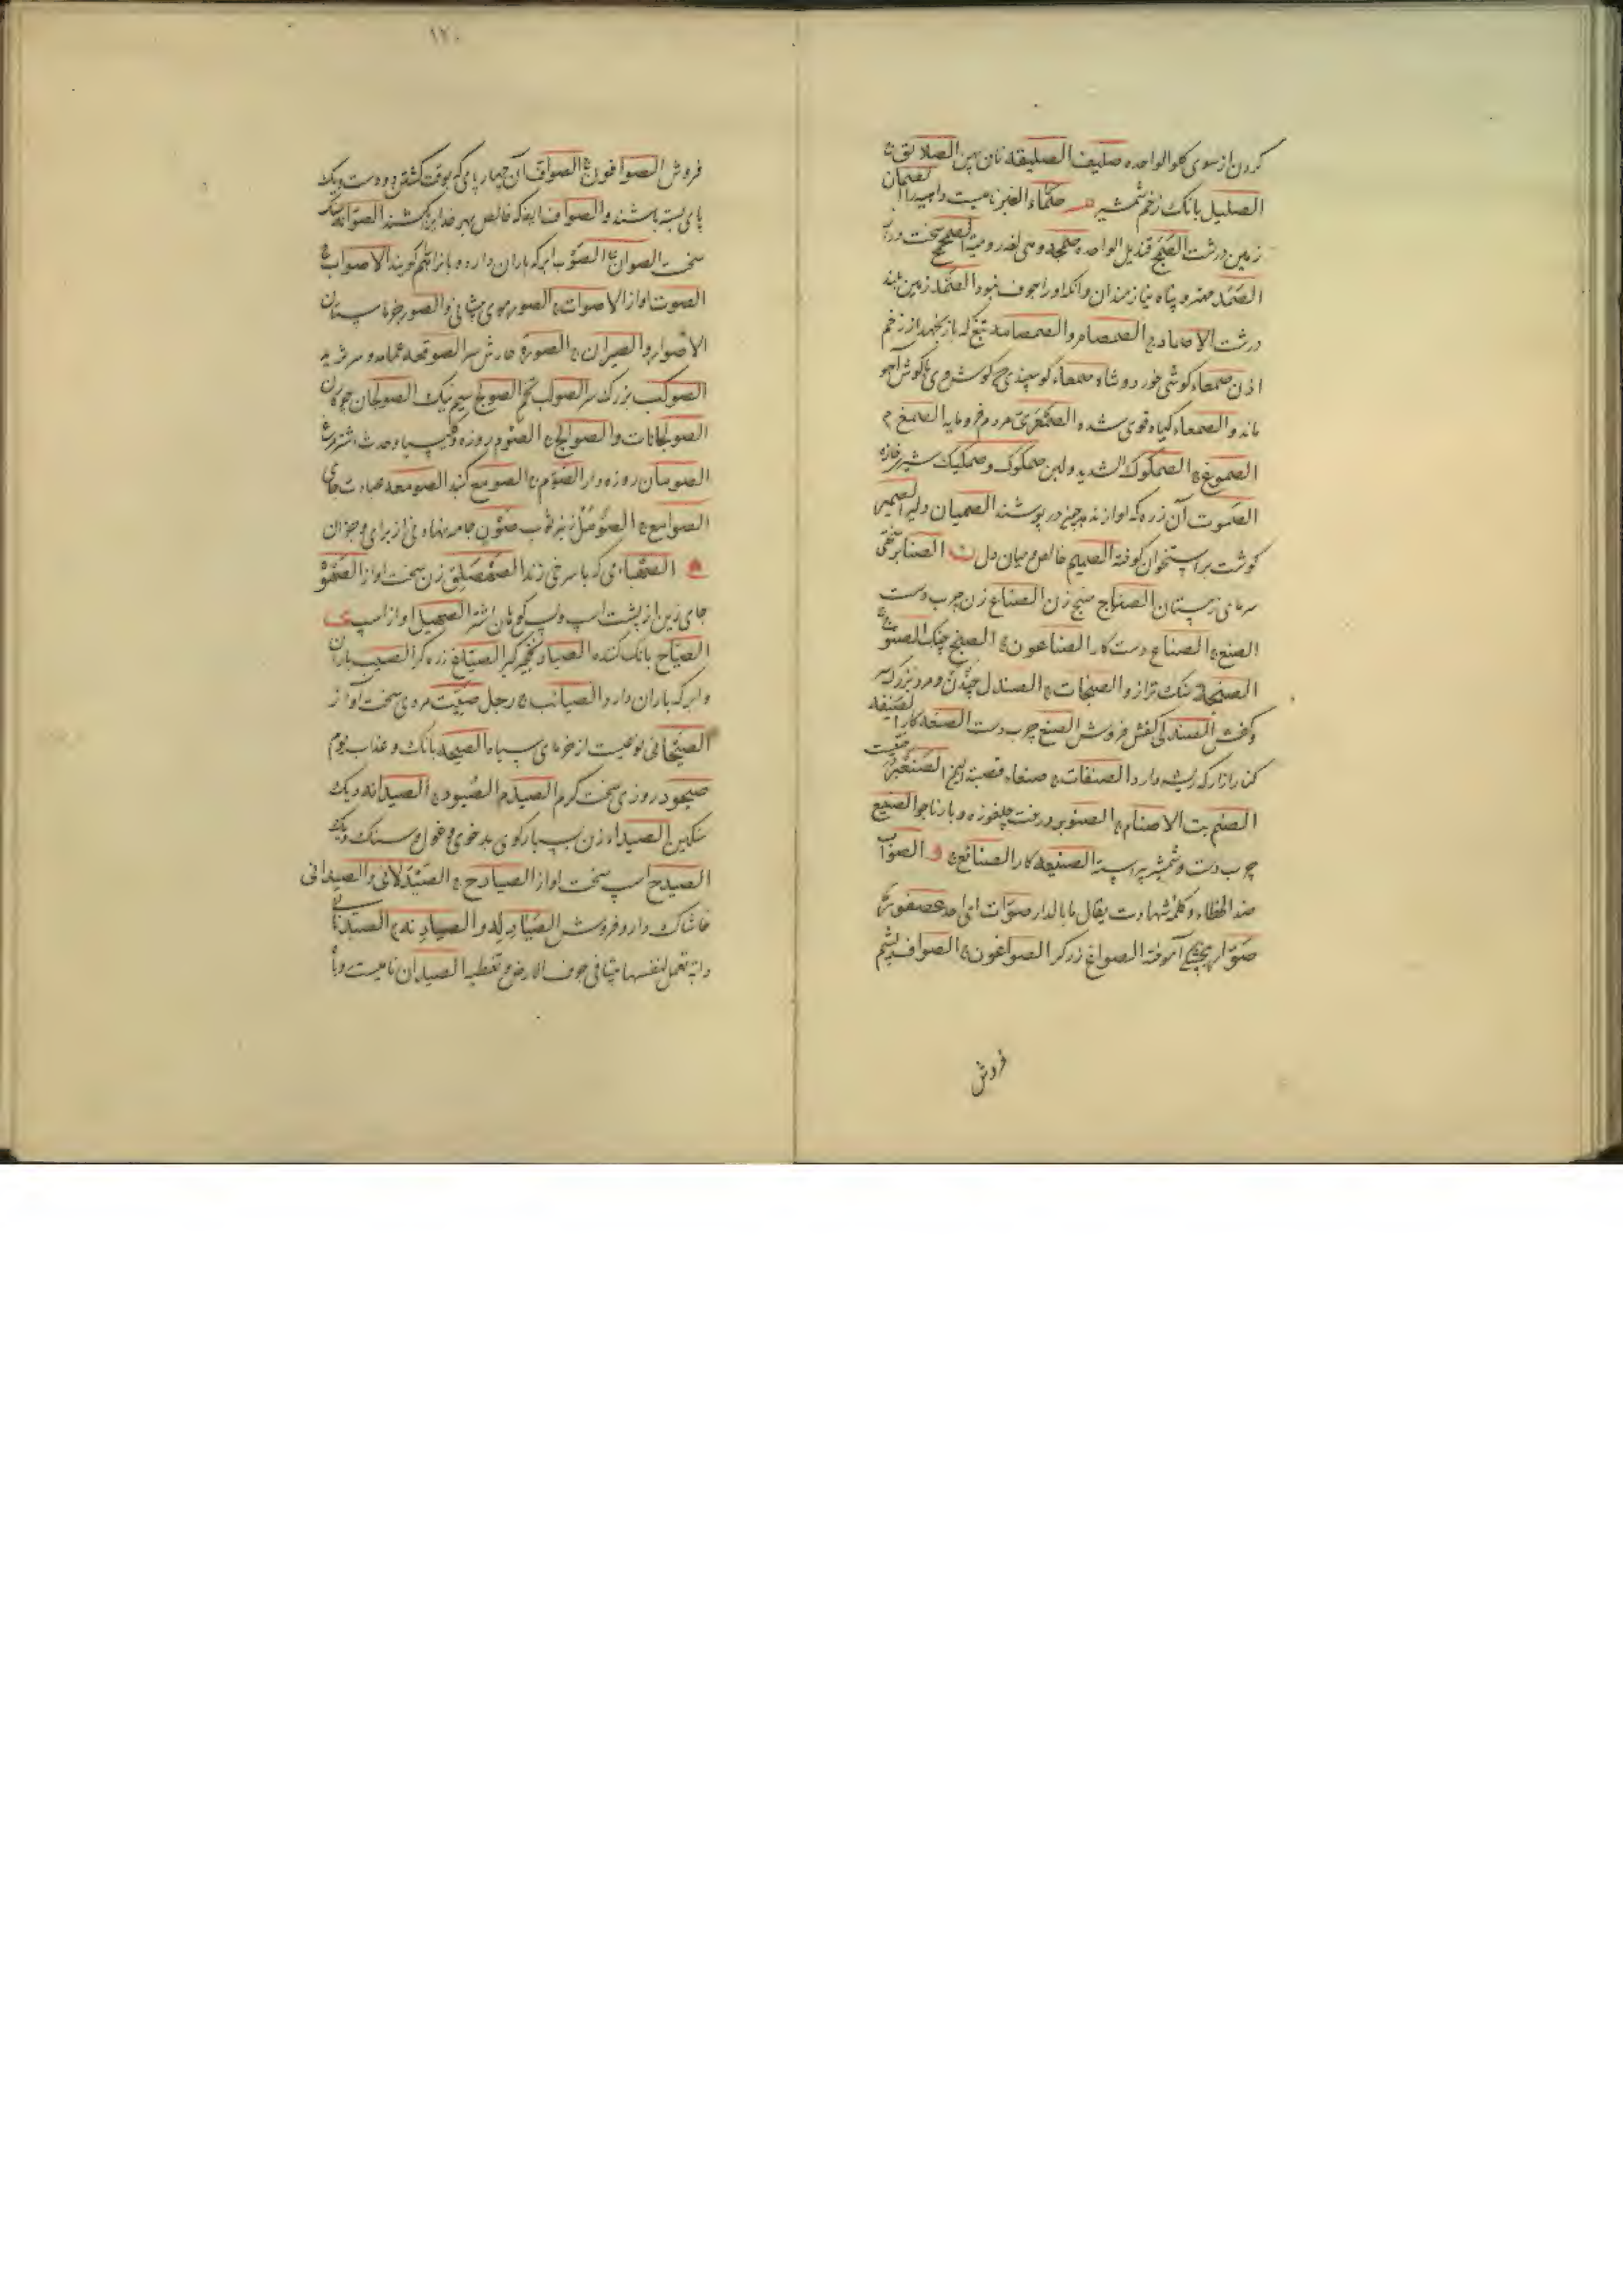 کردن از سوی کلو الواحده صلیف الصلیقه نان پهن الصلائق ج
الصلیل بانک زخم شمشیر صلماء الصمان
زمین درشت الصمج قندیل الواحده صمجه وهی لغه رومیة الصمحمح سخت
الصمد مهتر و پناه نیازمندان وانکه اورا جوف نبود الصمد زمین بلند
درشت الاصماد ج الصمصام والصمصامه تیغ که باز نجهد از زخم
اذن صمعاء کوشی خورد و شاه صمعاء کوسپندی
ماند و الصمعاء کیاه قوی شده الصمعری مردم فرومایه الصمغ م
الصموغ ج الصمکوک الشدید ولبن صمکوک وصمکیک شیر
الصموت آن زره که اواز ندهد چون در پوشند الصمیان دلیر الصمیم
کوشت بر استخوان کوفته الصمیم خالص و میان دل ن الصنابر
سرمای زمستان الصناج صنج زن الصناع زن چرب دست
الصنع ج الصناع دست کار الصناعون ج الصنج چنک الصنوج
الصنجة سنک ترازو الصنجات ج الصندل چندن و مرد بزرک سر
وکفش الصندلی کفش فروش الصنع چرب دست الصنعه کار الصنفه
کنار ازار که ریشه دارد الصنفات ج صنعاء قصبة الیمن الصنعبر
الصنم بت الاصنام ج الصنوبر درخت چلغوزه و بار ناجو الصنیع
چرب دست و شمشیر پیراسته الصنیعه کار الصنائع ج و الصواب
ضد الخطاء و کلمهٔ شهادت یقال ما بالدار صوات ای احد عصفور
صوار آموخته الصواغ زرکر الصواغون ج الصواف پشم
فروش
۱۲۰
فروش الصوافون ج الصواف آن چهارپای که بوقت کشتن دو دست ویک
پای بسته باشند والصواف انکه خالص بهر خدایرا بکشند الصوانه سنک
سخت الصوان ج الصوب ابر که باران دارد و بارانرا هم کویند الاصواب ج
الصوت اواز الاصوات ج الصور موی پیشانی والصور خرماستان
الاصوار والصیران ج الصورة خارش سر الصوقعه عمامه و سر ثرید
الصوکب بزرک سر الصولب تخم الصولج سیم نیک الصولجان چوکان
الصولجانات والصوالج ج الصوم روزه و کلیسیا وحدث اشترمرغ
الصومان روزه دار الصوم ج الصومع کنبد الصومعه عبادت جای
الصوامع ج ثوب صون جامه نهاده از برای
الصهباء می که با سرخی زند الصهصلق زن سخت اواز الصهوة
جای زین از پشت اسپ و پس کوهان اشتر الصهیل اواز اسپ ی
الصیاح بانک کننده الصیاد نخجیرکیر الصیاغ زرکر الصیب باران
و ابر که باران دارد الصیائب ج رجل صیت مردی سخت آواز
الصیحانی نوعیست از خرمای سیاه الصیحه بانک و عذاب یوم
صیخود روزی سخت کرم الصید م الصیود ج الصیدانه دیک
سنکین الصیداء زن بسیارکوی بدخوی و غول و سنک دیک
الصیدح اسپ سخت اواز الصیادح ج الصیدلانی والصیدانی
خاشاک داروفروش الصیادله والصیادنه ج الصیدنانی
دابة تعمل لنفسها بیتا فی جوف الارض و تغطیه الصیدان